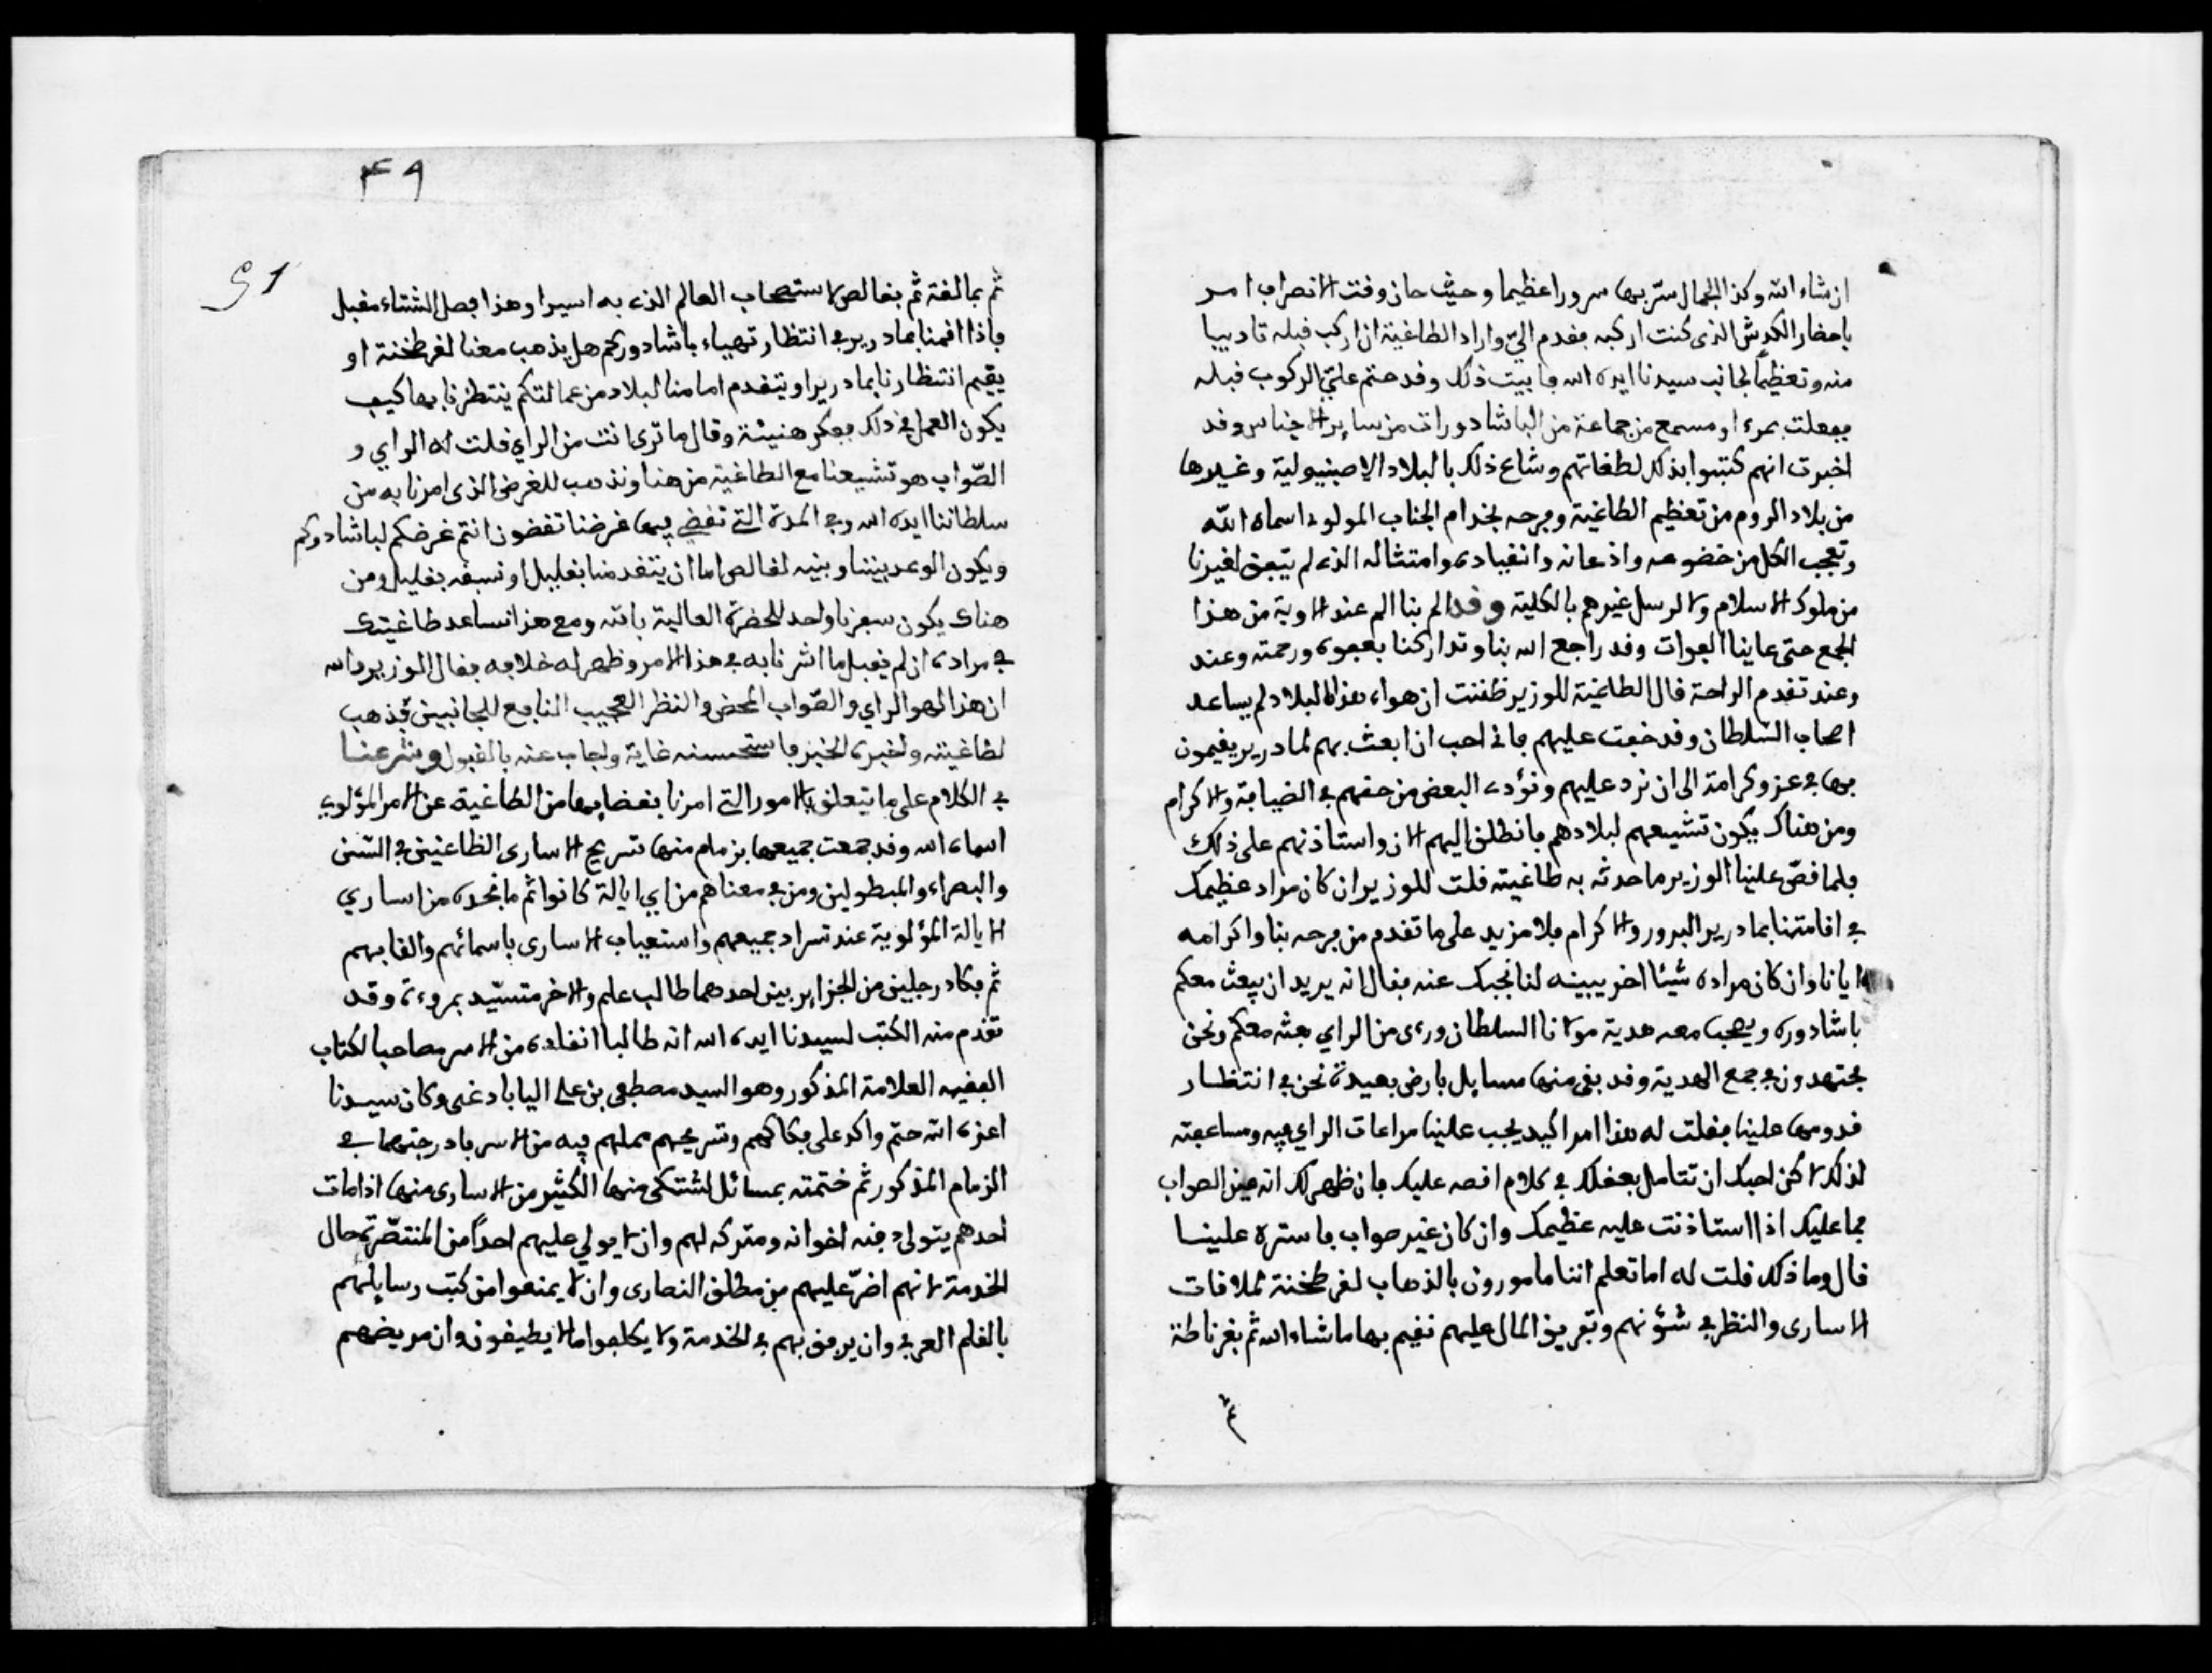 ان شاء الله وكذا الجمال سّر بها سرورا عظيما وحيث حان وقت الانصراف امر
باحضار الكدش الذى كنت اركبه فقدم اليّ واراد الطاغية ان اركب قبله تادبيا
منه وتعظيماً لجانب سيدنا ايده الله فابيت ذلك وقد حتم عليّ الركوب قبله
ففعلت بمرءا ومسمع من جماعة من الباشادورات من ساير الاجناس وقد
اخبرت انهم كتبوا بذلك لطغاتهم وشاع ذلك بالبلاد الاصبنيولية وغيرها
من بلاد الروم من تعظيم الطاغية وفرحه بخدام الجناب المولوى اسماه الله
وتعجب الكل من خضوعه واذعانه وانقياده وامتثاله الذى لم يتفق لغيرنا
من ملوك الاسلام ولا لرسل غيرهم بالكلية وقد الم بنا الم عند الاوبة من هذا
الجمع حتى عاينا الفوات وقد راجع الله بنا وتداركنا بعفوه ورحمته وعند
وعند تقدم الراحة قال الطاغية للوزير ظننت ان هواء هذه البلاد لم يساعد
اصحاب السّلطان وقد خفت عليهم فانى احب ان ابعث بهم لمادرير يقيمون
بها في عز وكرامة الى ان نرد عليهم ونؤدى البعض من حقهم في الضيافة والاكرام
ومن هناك يكون تشييعهم لبلادهم فانطلق اليهم الان واستاذنهم على ذلك
فلما قصّ علينا الوزير ما حدثه به طاغيته قلت للوزير ان كان مراد عظيمك
في اقامتنا بمادرير البرور والاكرام فلا مزيد على ما تقدم من فرحه بنا واكرامه
ايانا وان كان مراده شيئا اخر يبينه لنا نجبك عنه فقال انه يريد ان يبعث معكم
باشادوره ويصحب معه هدية مولانا السلطان ورءى من الراي بعثه معكم ونحن
مجتهدون في جمع الهدية وقد بقى منها مسايل بارض بعيدة نحن في انتظار
قدومها علينا فقلت له هذا امر اكيد يجب علينا مراعات الراي فيه ومساعفته
لذلك لاكن احبك ان تتامل بعقلك في كلام اقصه عليك فان ظهر لك انه عين الصواب
فما عليك اذا استاذنت عليه عظيمك وان كان غير صواب فاستره علينا
قال وما ذلك قلت له اما تعلم اننا مامورون بالذهاب لقرطخنة لملاقات
الاسارى والنظر في شؤنهم وتفريق المال عليهم نقيم بها ما شاء الله ثم بغرناطة
ثم
٣٩
51
ثم بمالقة ثم بقالص لاستصحاب العالم الذى به اسيرا وهذا فصل الشتاء مقبل
فاذا اقمنا بمادرير في انتظار تهيىء باشادوركم هل يذهب معنا لقرطخنة او
يقيم انتظارنا بمادرير او يتقدم امامنا لبلاد من عمالتكم ينتظرنا بها كيف
يكون العمل في ذلك ففكر هنيئة وقال ما ترى انت من الراي قلت له الراي و
الصّواب هو تشيعنا مع الطاغية من هنا ونذهب للغرض الذى امرنا به من
سلطاننا ايده الله وفي المدة التي نقضي فيها غرضنا تقضون انتم غرضكم لباشادوركم
ويكون الوعد بيننا وبينه لقالص اما ان يتقدمنا بقليل او نسبقه بقليل ومن
هناك يكون سفرنا واحد للحضرة العالية بالله ومع هذا نساعد طاغيتك
في مراده ان لم يقبل ما اشرنا به في هذا الامر وظهر له خلافه فقال الوزير والله
ان هذا لهو الراي والصّواب المحض والنظر العجيب النافع للجانبين فذهب
لطاغيته واخبره الخبر فاستحسنه غاية واجاب عنه بالقبول وشرعنا
في الكلام على ما يتعلق بالامور التي امرنا بقضايها من الطاغية عن الامر المؤلوي
اسماه الله وقد جمعت جميعها بزمام منها تسريح الاسارى الظاعنين في السّن
والبصراء والمبطولين ومن في معناهم من اي ايالة كانوا ثم ما نجده من اساري
الايالة المؤلوية عند تسراد جميعهم واستيعاب الاسارى باسمائهم والقابهم
ثم فكاد رجلين من الجزاير بين احدهما طالب علم والاخر متسيّد بمروءة وقد
تقدم منه الكتب لسيدنا ايده الله انه طالبا انقاذه من الاسر مصاحبا لكتاب
الفقيه العلامة المذكور وهو السيد مصطفى بن علي اليابادغى وكان سيدنا
اعزه الله حتم واكد على فكاكهم وتسريحهم مما هم فيه من الاسر فادرجتهما في
الزمام المذكور ثم ختمته بمسائل اشتكى منها الكثير من الاسارى منها اذا مات
احدهم يتولى دفنه اخوانه ومتركه لهم وان لا يولي عليهم احداً من المنتصّرة حال
الخدمة لانهم اضرّ عليهم من مطلق النصارى وان لا يمنعوا من كتب رسايلهم
بالقلم العربي وان يرفق بهم في الخدمة ولا يكلفوا ما لا يطيقون وان مريضهم